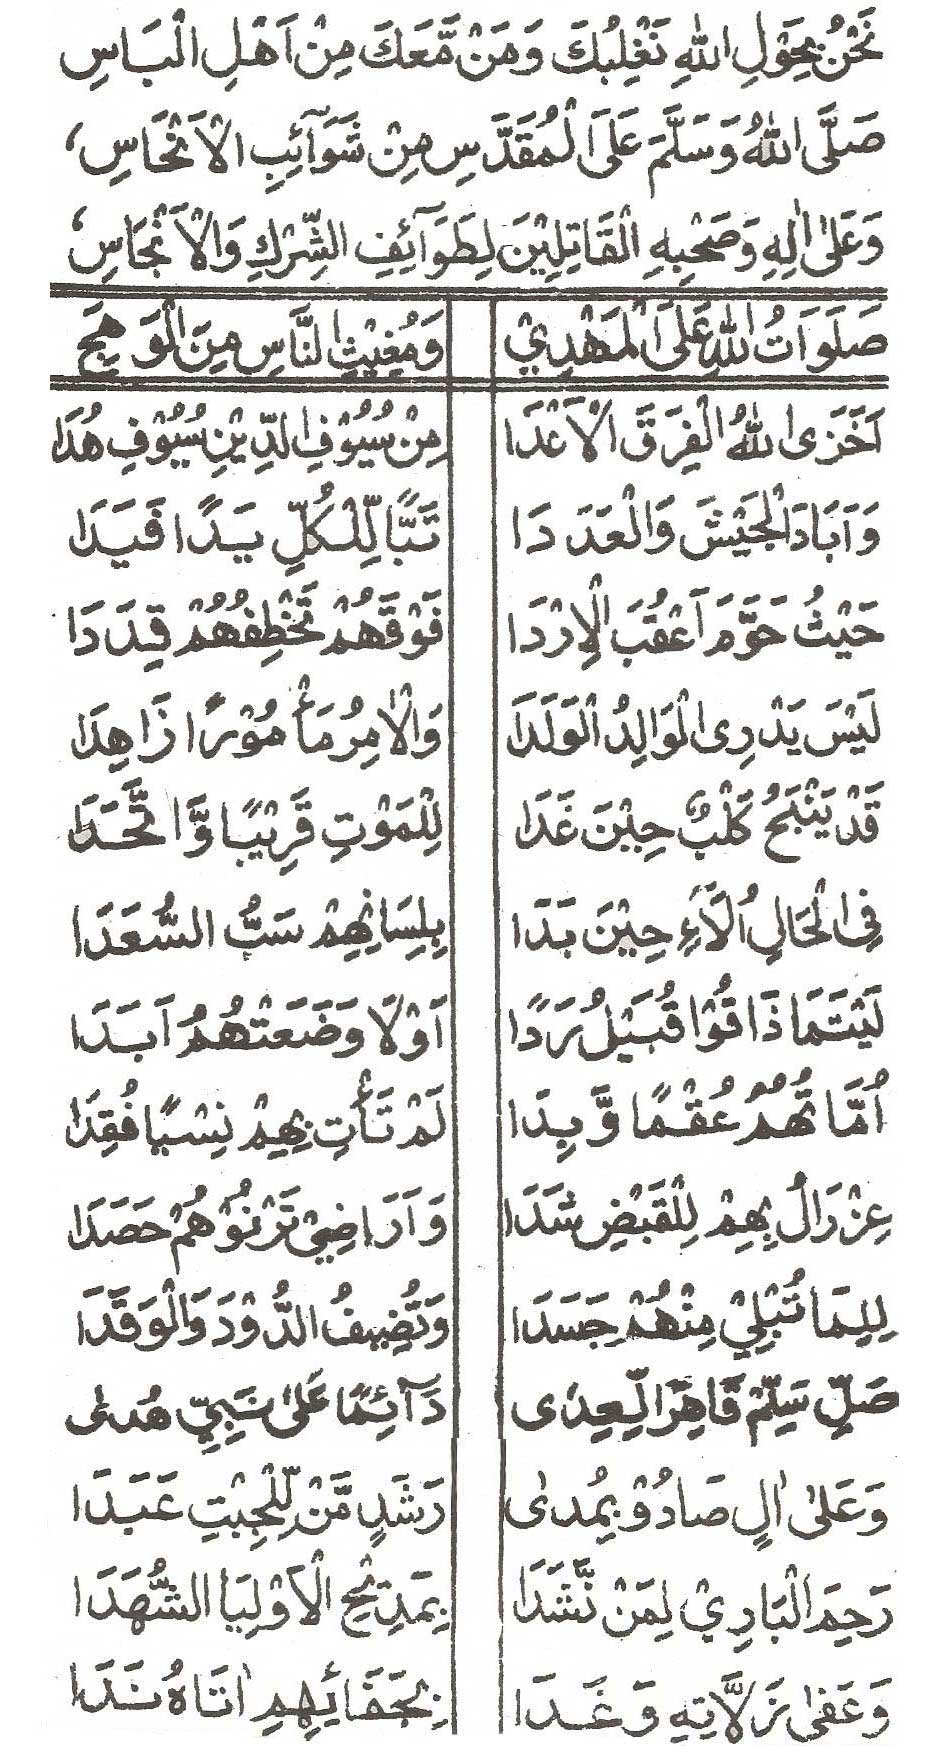 نَحْنُ بِحَوْلِ اللّٰهِ نَغْلِبُكَ وَمَنْ مَّعَكَ مِنْ اَهْلِ الْبَاسِ
صَلَّى اللّٰهُ وَسَلَّمَ عَلَى الْمُقَدَّسِ مِنْ شَوَآئِبِ الْاَنْحَاسِ،
وَعَلٰى اٰلِهِ وَصَحْبِهِ الْقَاتِلِيْنَ لِطَوَآئِفِ الشِّرْكِ وَالْاَنْجَاسِ،
صَلَوَاتُ اللّٰهِ عَلَى الْمَهْدِيْ وَمُغِيْثِ النَّاسِ مِنَ الْوَهِجِ
اَخْزَى اللّٰهُ الْفِرَقَ الْاَعْدَا مِنْ سُيُوْفِ الدِّيْنِ سُيُوْفِ هُدَا
وَاَبَادَ الْجَيْشَ وَالْعَدَدَا تَبًّا لِّلْكُلِّ يَدًا فَيَدَا
حَيْثُ حَوَّمَ اَعْقَبَ الْاِرْدَا فَوْقَهُمْ تَخْطِفُهُمْ قِدَدَا
لَيْسَ يَدْرِى الْوَالِدُ الْوَلَدَا وَالْاٰمِرُ مَأْمُوْرًا زَاهِدَا
قَدْ يَنْبَحُ كَلْبٌ حِيْنَ غَدَا لِلْمَوْتِ قَرِيْبًا وَّاتَّحَدَا
فِى الْحَالِ اُلَآءِ حِيْنَ بَدَا بِلِسَانِهِمْ سَبُّ السُّعَدَا
لَيْتَمَا ذَاقُوْا قُبَيْلُ رَدًا اَوْلَا وَضَعَتْهُمْ اَبَدَا
اُمَّاتُهُمْ عُقْمًا وَّبِدَا لَمْ تَأْتِ بِهِمْ نِسْيًا فُقِدَا
عِزْرَالُ بِهِمْ لِلْقَبْضِ شَدَا وَاَرَاضِيْ تَرْنُوْهُمْ حَصَدَا
لِلِمَا تُبْلِيْ مِنْهُمْ جَسَدَا وَتُضِيْفُ الدُّوْدَ وَالْوَقَدَا
صَلِّ سَلِّمْ قَاهِرَ الِّعِدٰى دَآئِمًا عَلٰى نَبِيِّ هُدٰى
وَعَلٰى اٰلٍ صَادُوْ بِمُدٰى رَشَدٍ مَّنْ لِّلْجِبْتِ عَبَدَا
رَحِمَ الْبَارِيْ لِمَنْ نَّشَدَا بِمَدِيْحِ الْاَوْلِيَا الشُّهَدَا
وَعَفٰى زَلَّاتِهِ وَغَدَا بِجَفَائِهِمِ اٰتَاهُ نَدَا